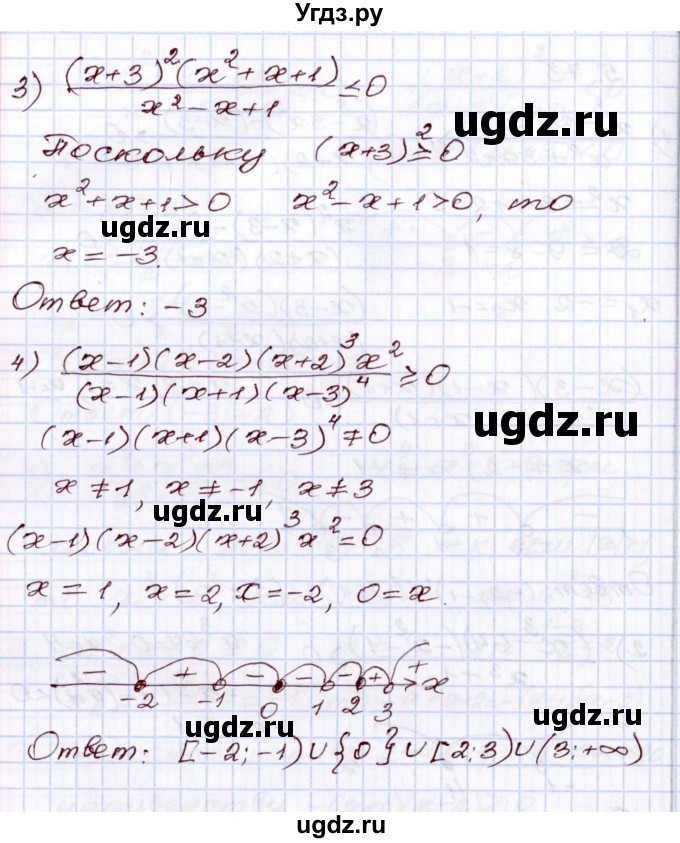 Угдз.ру
3) (x+3)²(x²+x+1) / x²-x+1 ≤0
ugdz.ru
Поскольку (x+3)²≥0
x²+x+1>0 x²-x+1>0, то
ugdz.ru
x = -3.
Ответ: -3
4) (x-1)(x-2)(x+2)³x² / (x-1)(x+1)(x-3)⁴ ≥0
ugdz.ru
(x-1)(x+1)(x-3)⁴≠0
x ≠ 1, x ≠ -1, x ≠ 3
ugdz.ru
(x-1)(x-2)(x+2)³x²=0
x = 1, x = 2, x = -2, 0 = x.
- + - - - + + x
-2 -1 0 1 2 3
ugdz.ru
Ответ: [-2;-1)∪{0}∪[2;3)∪(3;+∞)
ugdz.ru
ugdz.ru